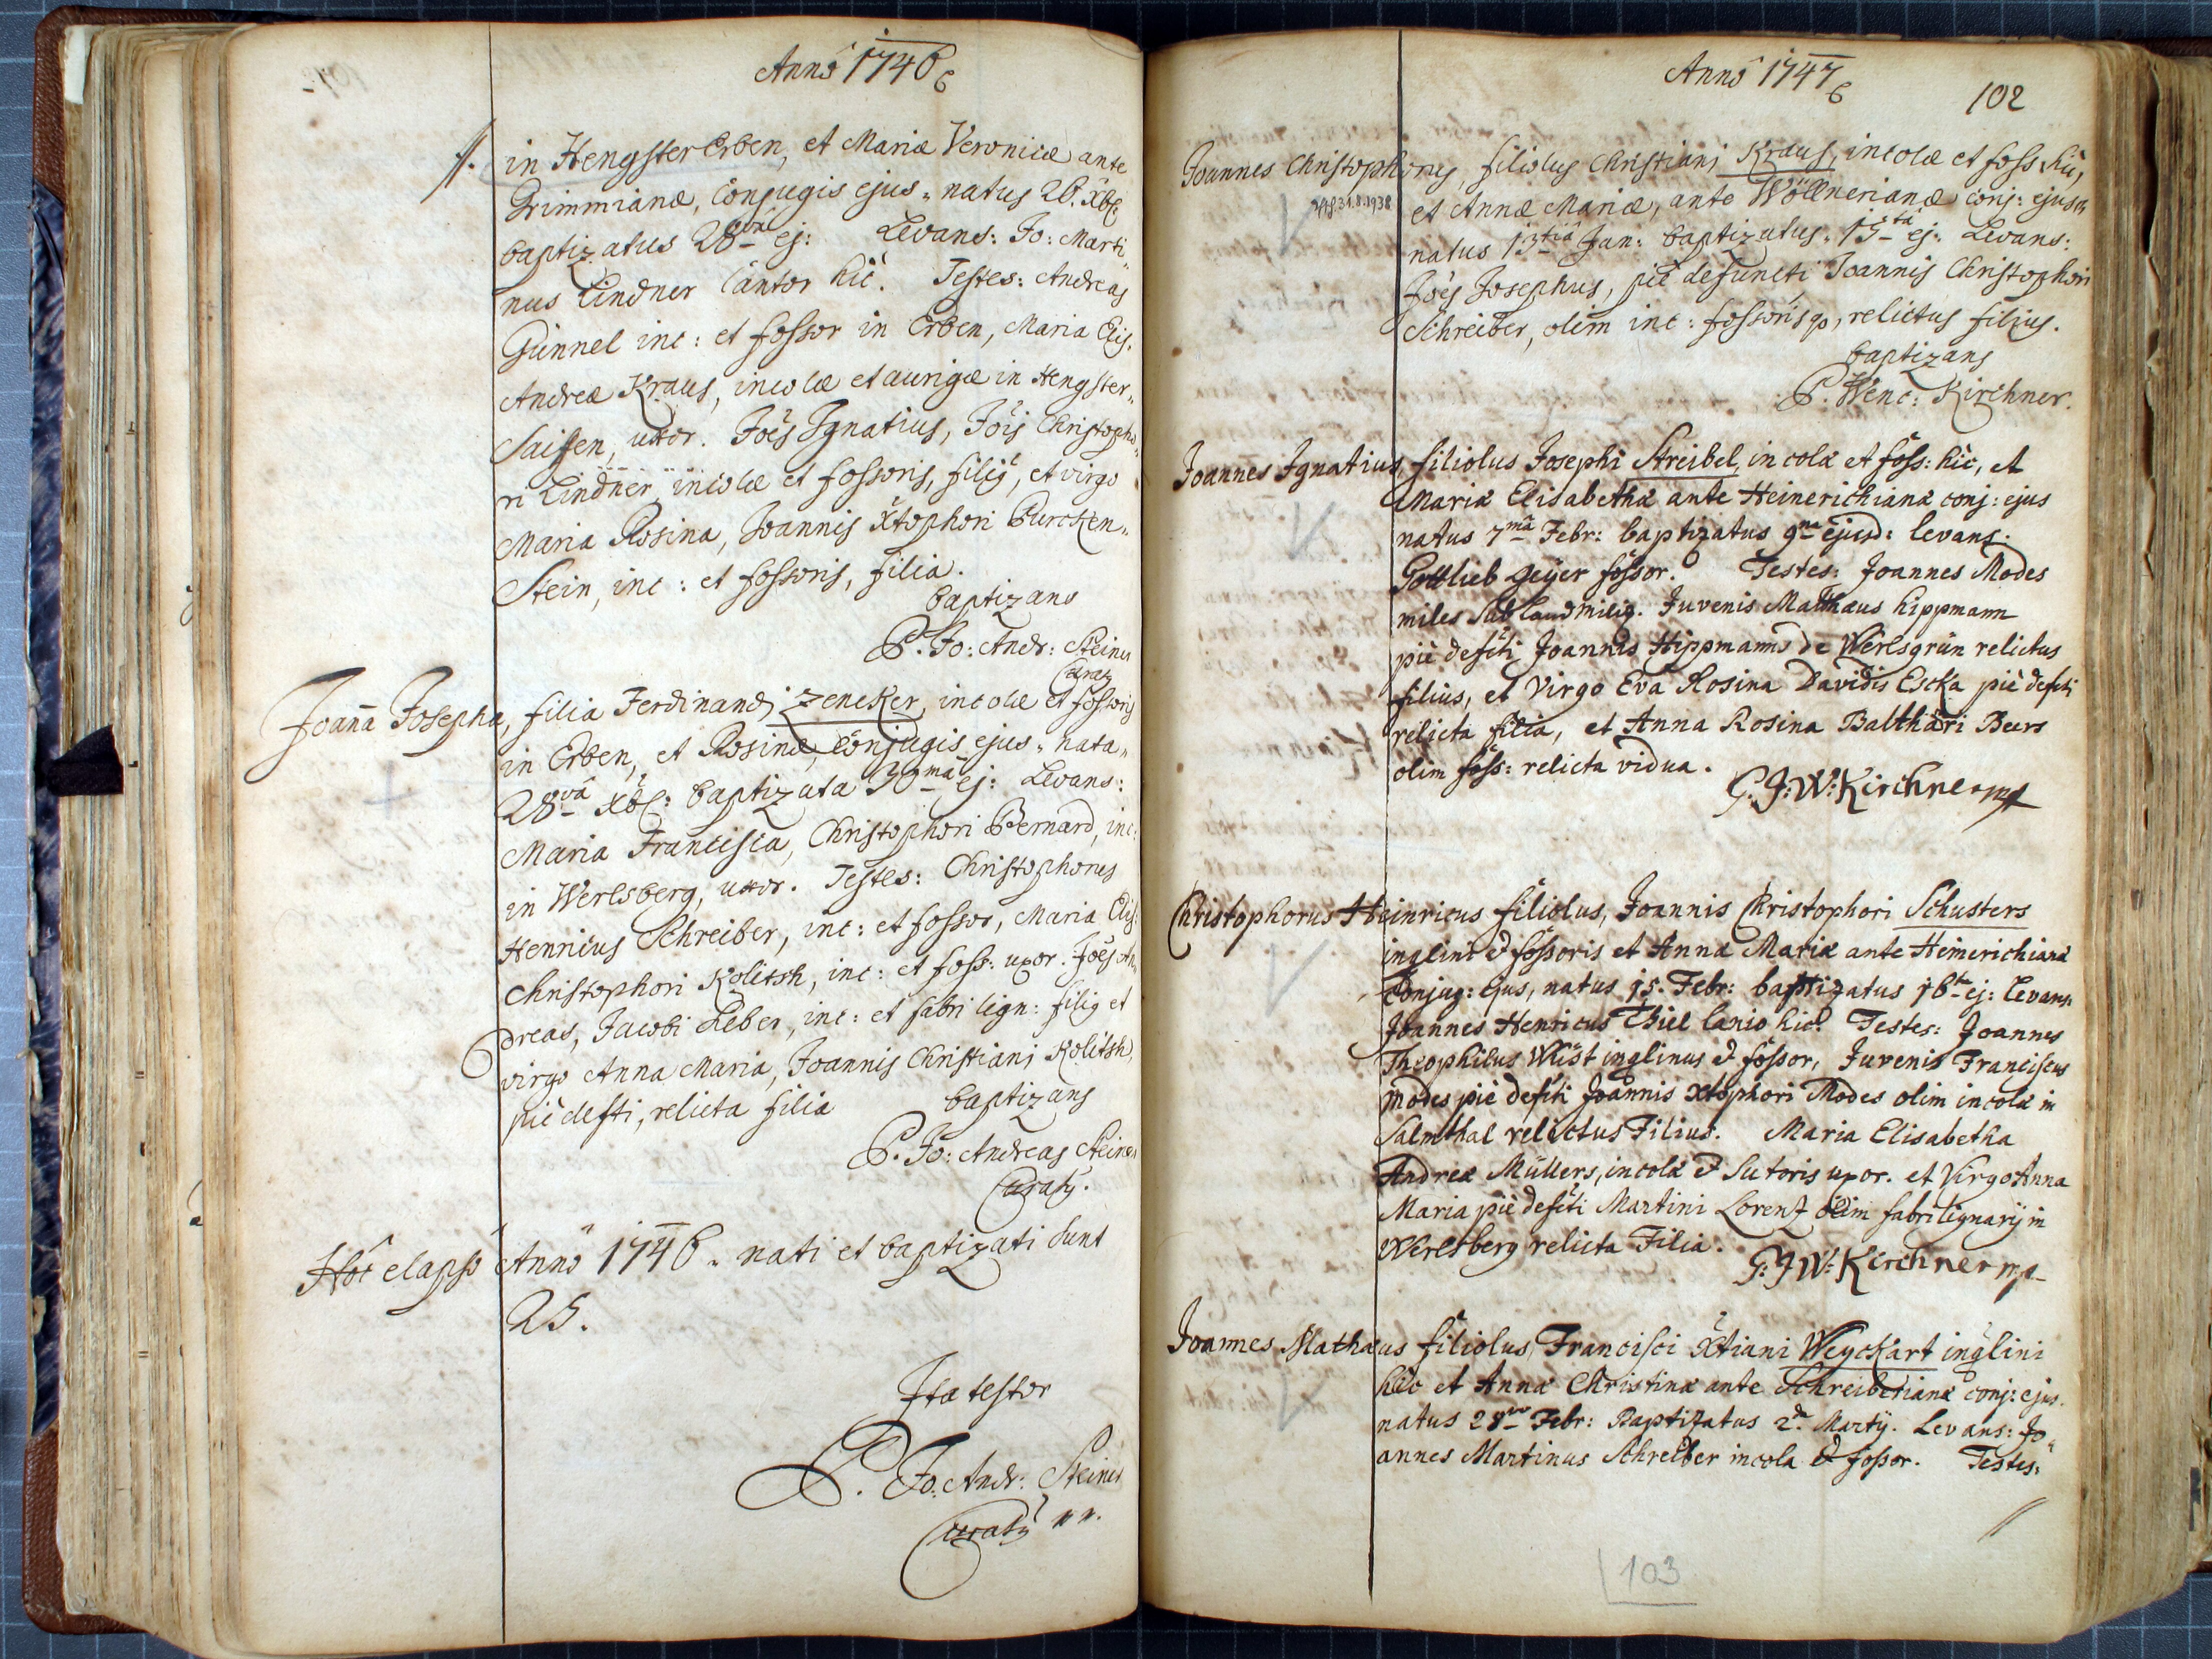 Annô 1746
//. in HengsterErben, et Mariæ Veronicæ ante
Grimmianæ, conjugis ejus. natus 26. Xbr.
baptizatus 28va ej: Levans: Jo: Marti„
nus Lindner Cantor hîc. Testes: Andreas
Günnel inc: et fossor in Erben, Maria Elis.
Andreæ Kraus, incolæ et aurigæ in Hengster„
Saiffen, uxor. Joës Ignatius, Jöis Christopho„
ri Lindner, incolæ et fossoris, filig, et virgo
Maria Rosina, Joannis Xtophori Burcken„
Stein, inc: et fossoris, filia.
baptizans
P. Jo: Andr: Steiner
Curatg
Joaña Josepha, filia Ferdinandi Zeneker, incolæ et fossoris
in Erben, et Rosinæ, conjugis ejus. nata„
28vâ Xbr: baptizata 30mâ ej: Levans:
Maria Francisca, Christophori Bernard, inc:
in Werlsberg, uxor. Testes: Christophorus
Henricus Schreiber, inc: et fossor, Maria Elis:
Christophori Kolitsh, inc: et foss: uxor. Joës An„
dreas, Jacobi Leber, inc: et fabri lign: filig et
virgo Anna Maria, Joannis Christiani Kolitsh,
piè defti, relicta filia baptizans
P. Jo: Andreas Steiner
Curatg.
Hôc elapsô Annô 1746. nati et baptizati sunt
25.
Ita testor
P. Jo: Andr: Steiner
Curatg
Annô 1747
102
Joannes Christophorus, filiolus Christiani Kraus, incolæ et foss: hîc,
31.8.1938
et Annæ Mariæ, ante Wöllnerianæ conj: ejus
natus 13tiâ Jan: baptizatus. 15tâ ej: Levans:
Joës Josephus, piè defuncti Joannis Christophori
Schreiber, olim inc: fossorisqg, relictus filius.
baptizans
P. Wenc: Kirchner.
Joannes Ignatius, filiolus Josephi Streibel, incolæ et foss: hic, et
Mariæ Elisabethæ ante Heinerichianæ conj: ejus
natus 7mâ Febr: baptizatus 9nâ ejusd: levans:
Gottlieb Geijer fossor. Testes: Joannes Modes
miles Sub Landmilig. Juvenis Mathæus Hippmann
piè defcti Joannis Hippmanns de Werlsgrün relictus
filius, et Virgo Eva Rosina Davidis Escka piè defcti
relicta filia, et Anna Rosina Balthasari Beers
olim foss: relicta vidua.
P: J: W: Kirchner mp
Christophorus Heinricus filiolus, Joannis Christophori Schusters
inqlini & fossoris et Annæ Mariæ ante Heinerichianæ
Conjug: ejus, natus 15. Febr: baptizatus 16ta ej: Levans:
Joannes Henricus Thiel lanio hic. Testes: Joannes
Theophilus Wüst inqlinus & fossor, Juvenis Franciscus
Modes piè defcti Joannis Xtophori Modes olim incolæ in
Salmthal relictus Filius. Maria Elisabetha
Andreæ Müllers, incolæ & Sutoris uxor. et Virgo Anna
Maria piè defcti Martini Lorenz olim fabri lignarij in
Werlsberg relicta Filia.
P: J W: Kirchner mp
Joannes Mathæus filiolus Francisci Xtiani Weyckart inqlini
hic et Annæ Christinæ ante Schreiberianæ conj: ejus.
natus 28va Febr: Baptizatus 2da Martij. Levans: Jo„
annes Martinus Schreiber incola & fossor. Testes:
//
103